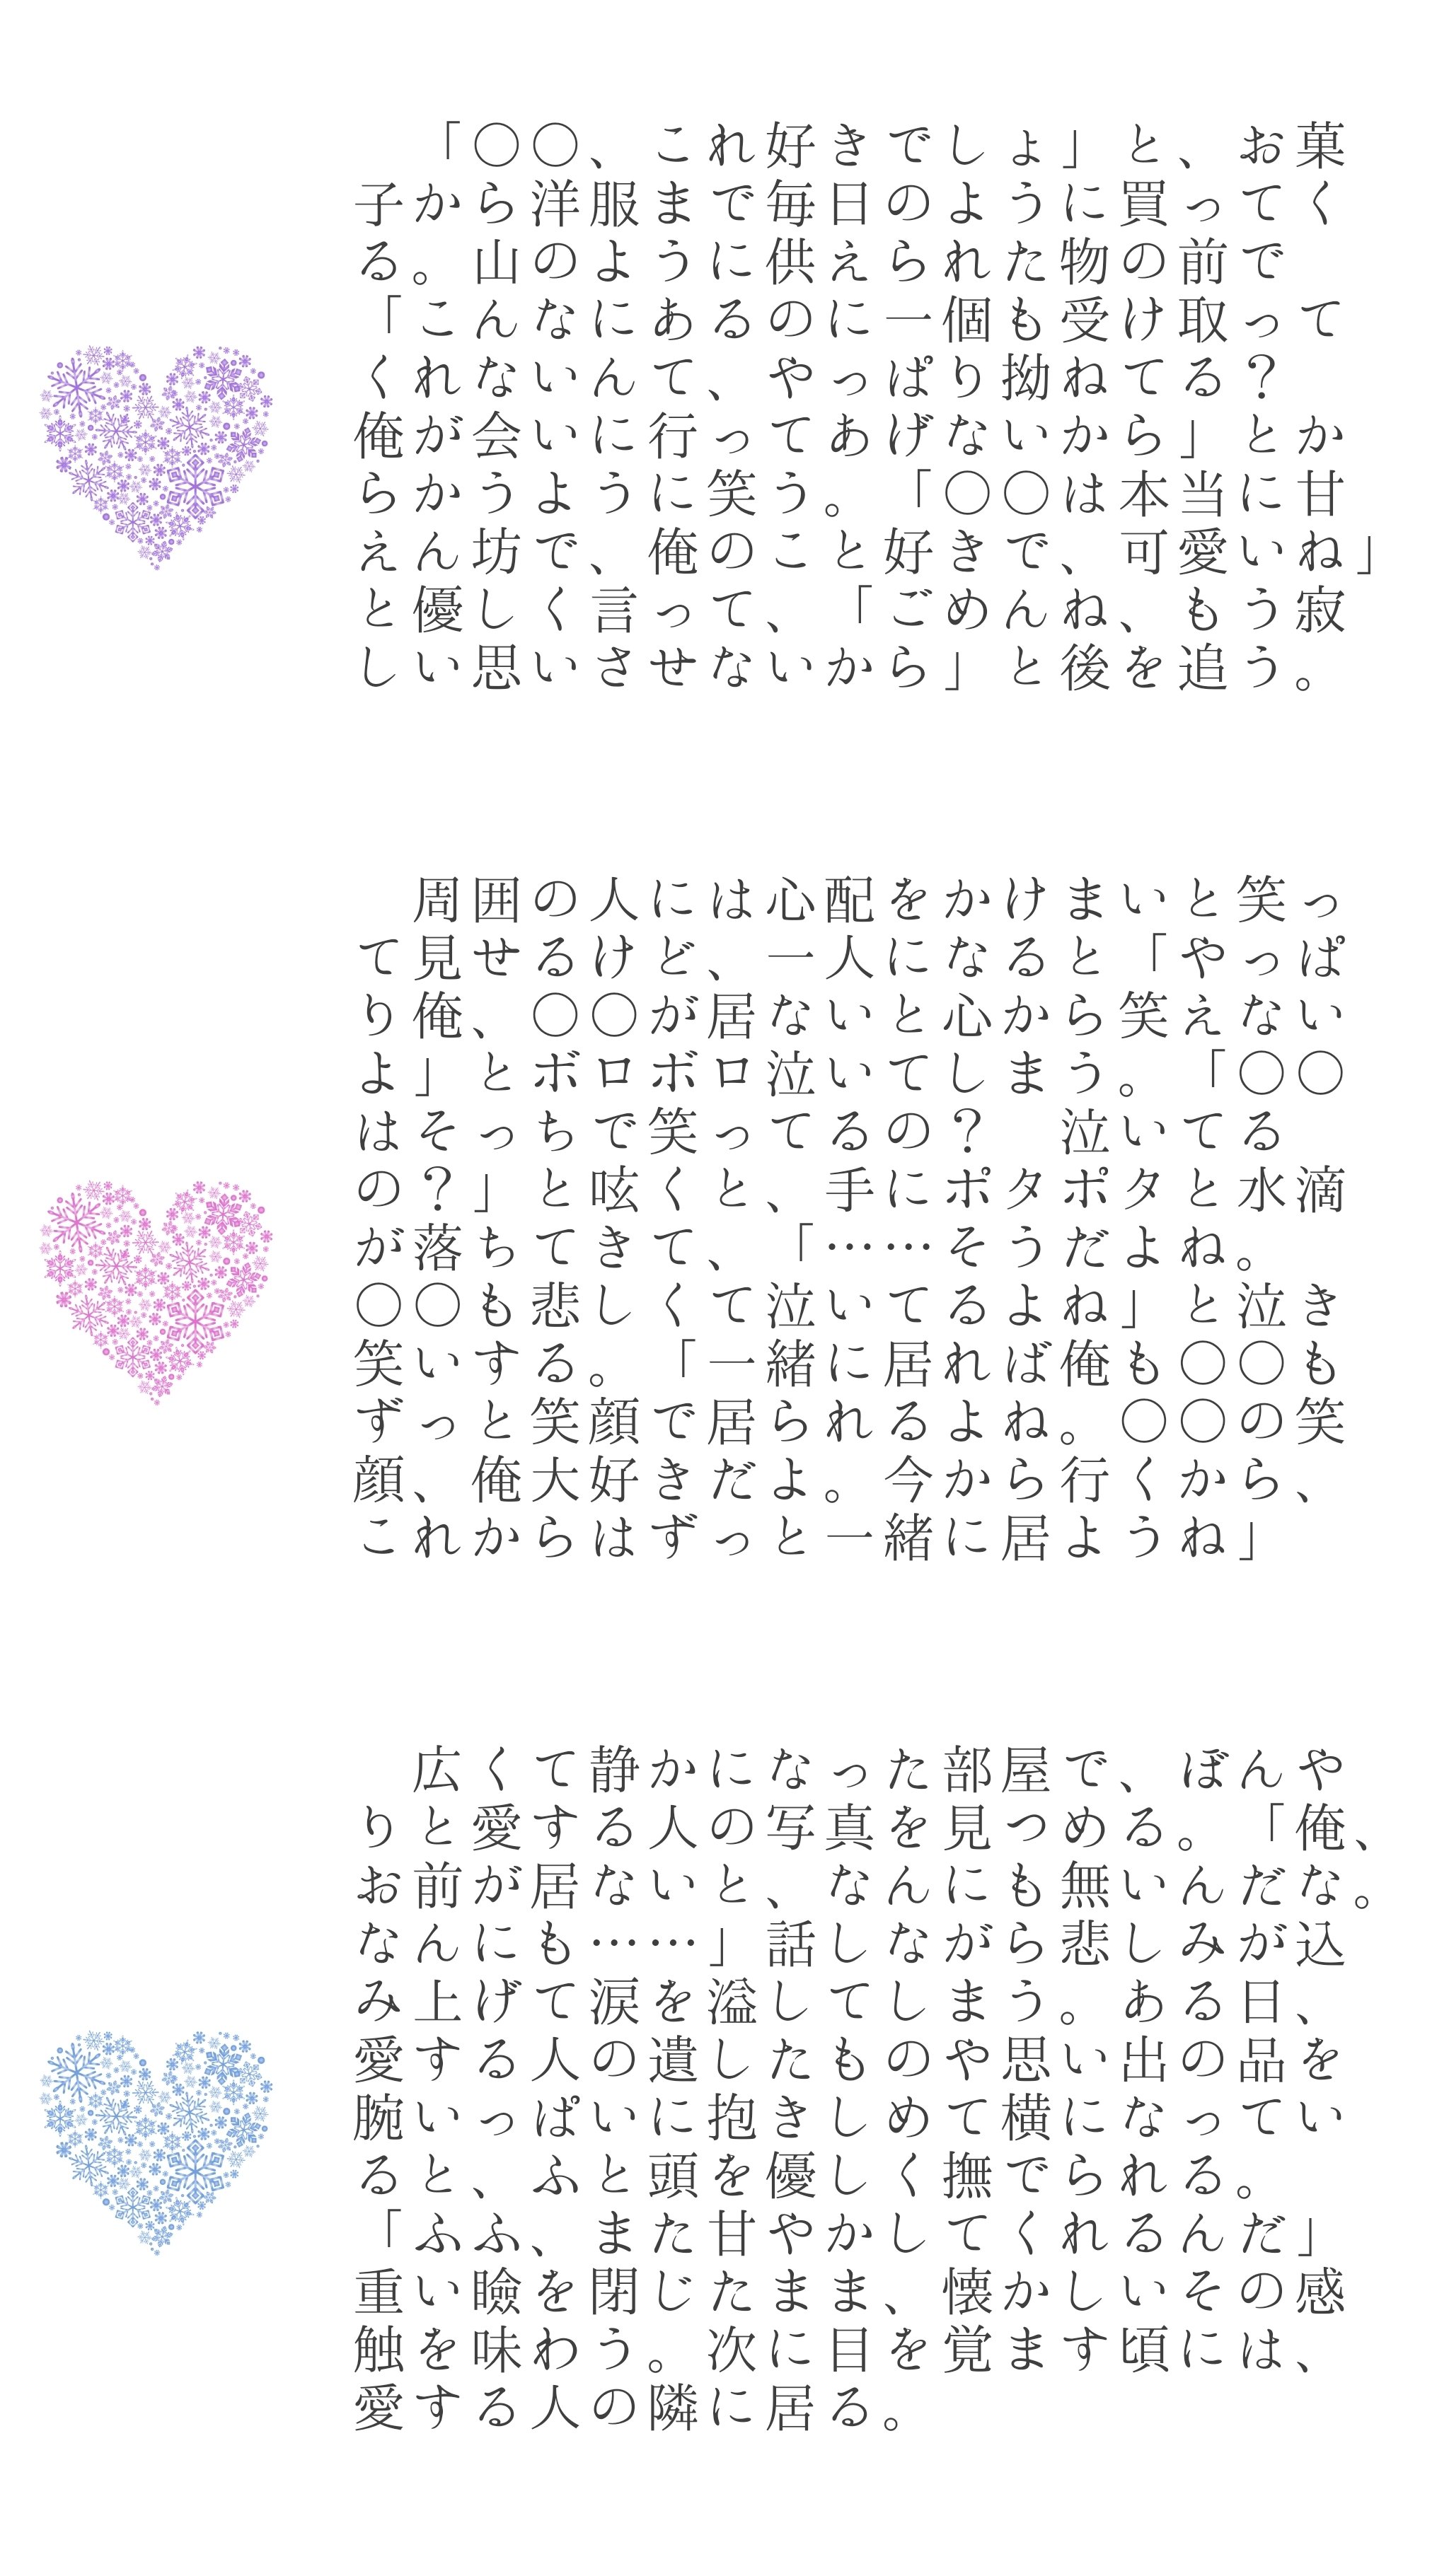 「〇〇、これ好きでしょ」と、お菓
子から洋服まで毎日のように買ってく
る。山のように供えられた物の前で
「こんなにあるのに一個も受け取って
くれないんて、やっぱり拗ねてる?
俺が会いに行ってあげないから」とか
らかうように笑う。「〇〇は本当に甘
えん坊で、俺のこと好きで、可愛いね」
と優しく言って、「ごめんね、もう寂
しい思いさせないから」と後を追う。
周囲の人には心配をかけまいと笑っ
て見せるけど、一人になると「やっぱ
り俺、〇〇が居ないと心から笑えない
よ」とボロボロ泣いてしまう。「〇〇
はそっちで笑ってるの? 泣いてる
の?」と呟くと、手にポタポタと水滴
が落ちてきて、「……そうだよね。
〇〇も悲しくて泣いてるよね」と泣き
笑いする。「一緒に居れば俺も〇〇も
ずっと笑顔で居られるよね。〇〇の笑
顔、俺大好きだよ。今から行くから、
これからはずっと一緒に居ようね」
広くて静かになった部屋で、ぼんや
りと愛する人の写真を見つめる。「俺、
お前が居ないと、なんにも無いんだな。
なんにも……」話しながら悲しみが込
み上げて涙を溢してしまう。ある日、
愛する人の遺したものや思い出の品を
腕いっぱいに抱きしめて横になってい
ると、ふと頭を優しく撫でられる。
「ふふ、また甘やかしてくれるんだ」
重い瞼を閉じたまま、懐かしいその感
触を味わう。次に目を覚ます頃には、
愛する人の隣に居る。